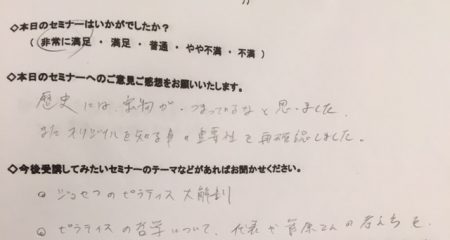 ◇本日のセミナーはいかがでしたか？
（ 非常に満足 ・ 満足 ・ 普通 ・ やや不満 ・ 不満 ）
◇本日のセミナーへのご意見ご感想をお願いいたします。
歴史には、宝物が、つまってるなと思いました。
またオリジナルを知る事の重要性を再確認しました。
◇今後受講してみたいセミナーのテーマなどがあればお聞かせください。
ジョセフのピラティス大解剖
ピラティスの哲学について、代表や菅原さんの考えも